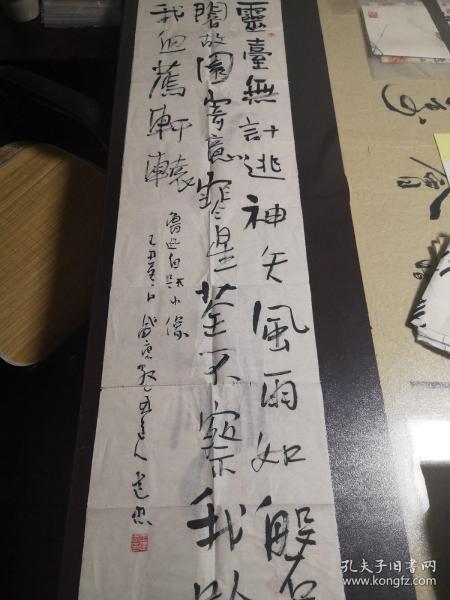 靈臺無計逃神矢風雨如磐
闇故園寄意寒星荃不察我以
我血薦軒轅
魯迅自題小像
孔夫子旧书网
www.kongfz.com